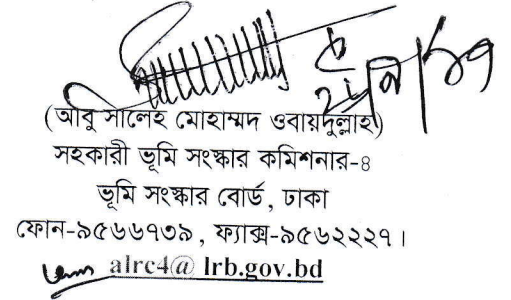 (আবু সালেহ মোহাম্মদ ওবায়দুল্লাহ)
সহকারী ভূমি সংস্কার কমিশনার-৪
ভূমি সংস্কার বোর্ড, ঢাকা
ফোন-৯৫৬৬৭৩৯, ফ্যাক্স-৯৫৬২২২৭।
alrc4@ lrb.gov.bd